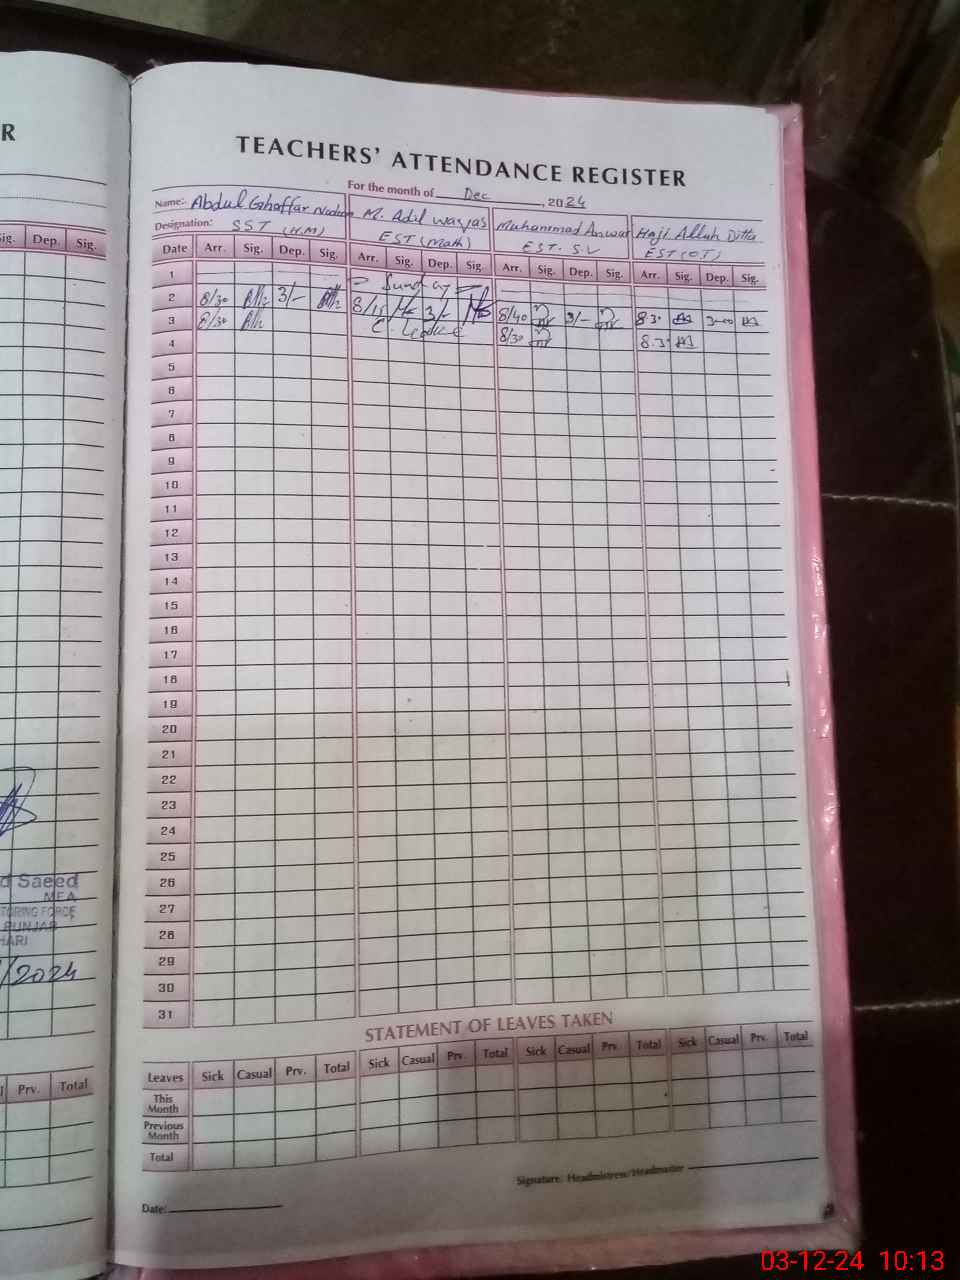 R
TEACHERS' ATTENDANCE REGISTER
For the month of Dec, 2024
Name:- Abdul Ghaffar M. Adil Muhammad Anwar Haji Allah Ditta
Designation: SST (H.M) EST (Math) EST. S.V EST (O.T)
Sig. Dep. Sig.
Date Arr. Sig. Dep. Sig. Arr. Sig. Dep. Sig. Arr. Sig. Dep. Sig. Arr. Sig. Dep. Sig.
1 Sunday
2 8/30 3/- 8/15 3/- 8/40 3/- 8.30 3-00
3 8/30 C. Leave 8/30 8.3
4
5
6
7
8
9
10
11
12
13
14
15
16
17
18
19
20
21
22
23
24
25
26
27
28
29
30
31
d Saeed
MEA
TORING FORCE
PUNJAB
HARI
/2024
STATEMENT OF LEAVES TAKEN
Leaves Sick Casual Prv. Total Sick Casual Prv. Total Sick Casual Prv. Total Sick Casual Prv. Total
Prv. Total
This
Month
Previous
Month
Total
Signature: Headmistress/Headmaster
Date:
03-12-24 10:13